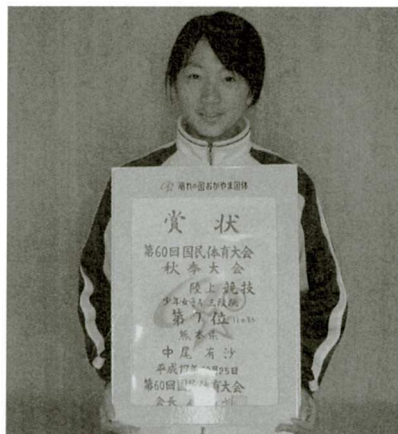 晴れの国おかやま国体
賞状
第60回国民体育大会
秋季大会
陸上競技
少年女子
第7位
熊本県
中尾有沙
平成17年 月25日
第60回国民体育大会
会長